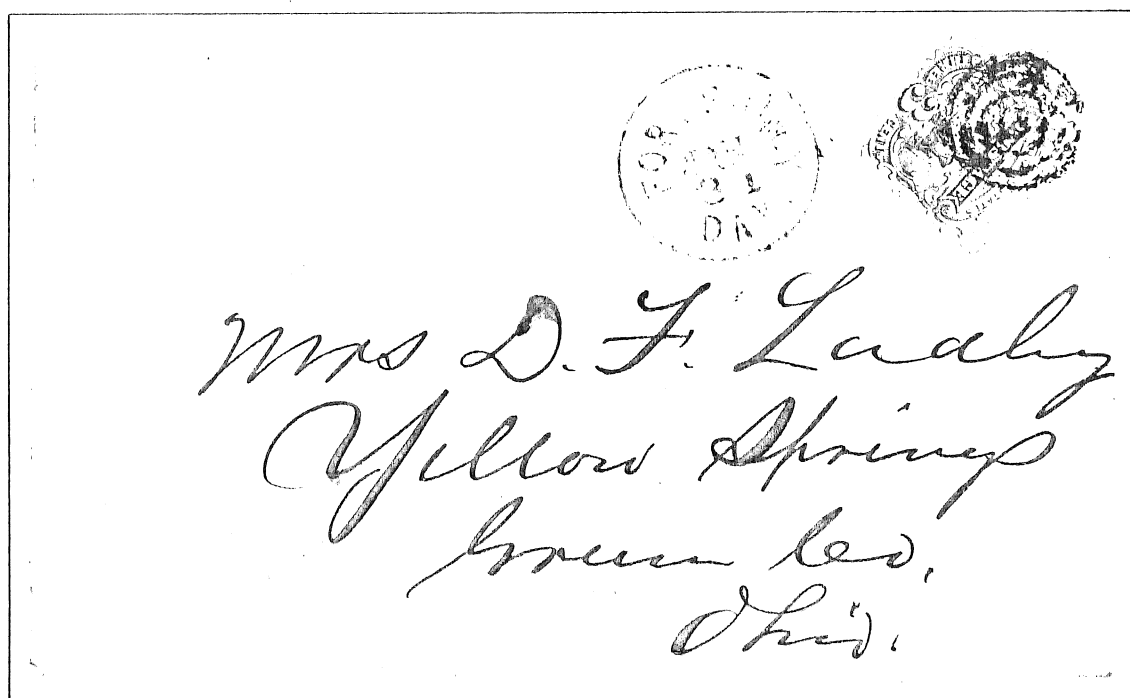 Mrs D. F. Ladley
Yellow Springs
Green Co,
Ohio.